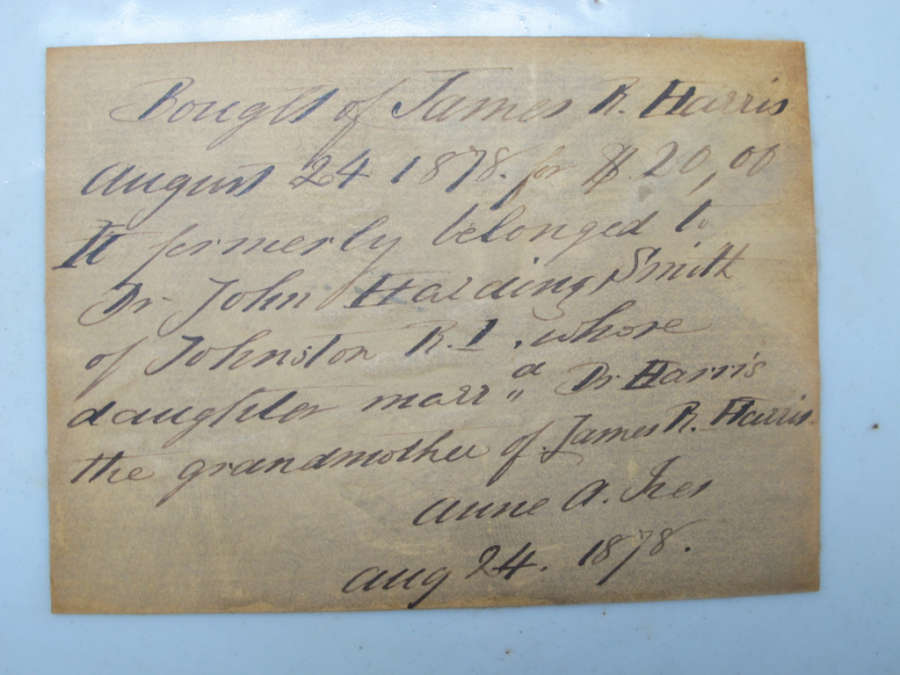 Bought of James R. Harris
August 24 1878. for $.20,00
It formerly belonged to
Dr John Harding Smith
of Johnston R.I. whose
daughter marr d Dr Harris
the grandmother of James R. Harris.
Anne A. Ives
Aug 24. 1878.